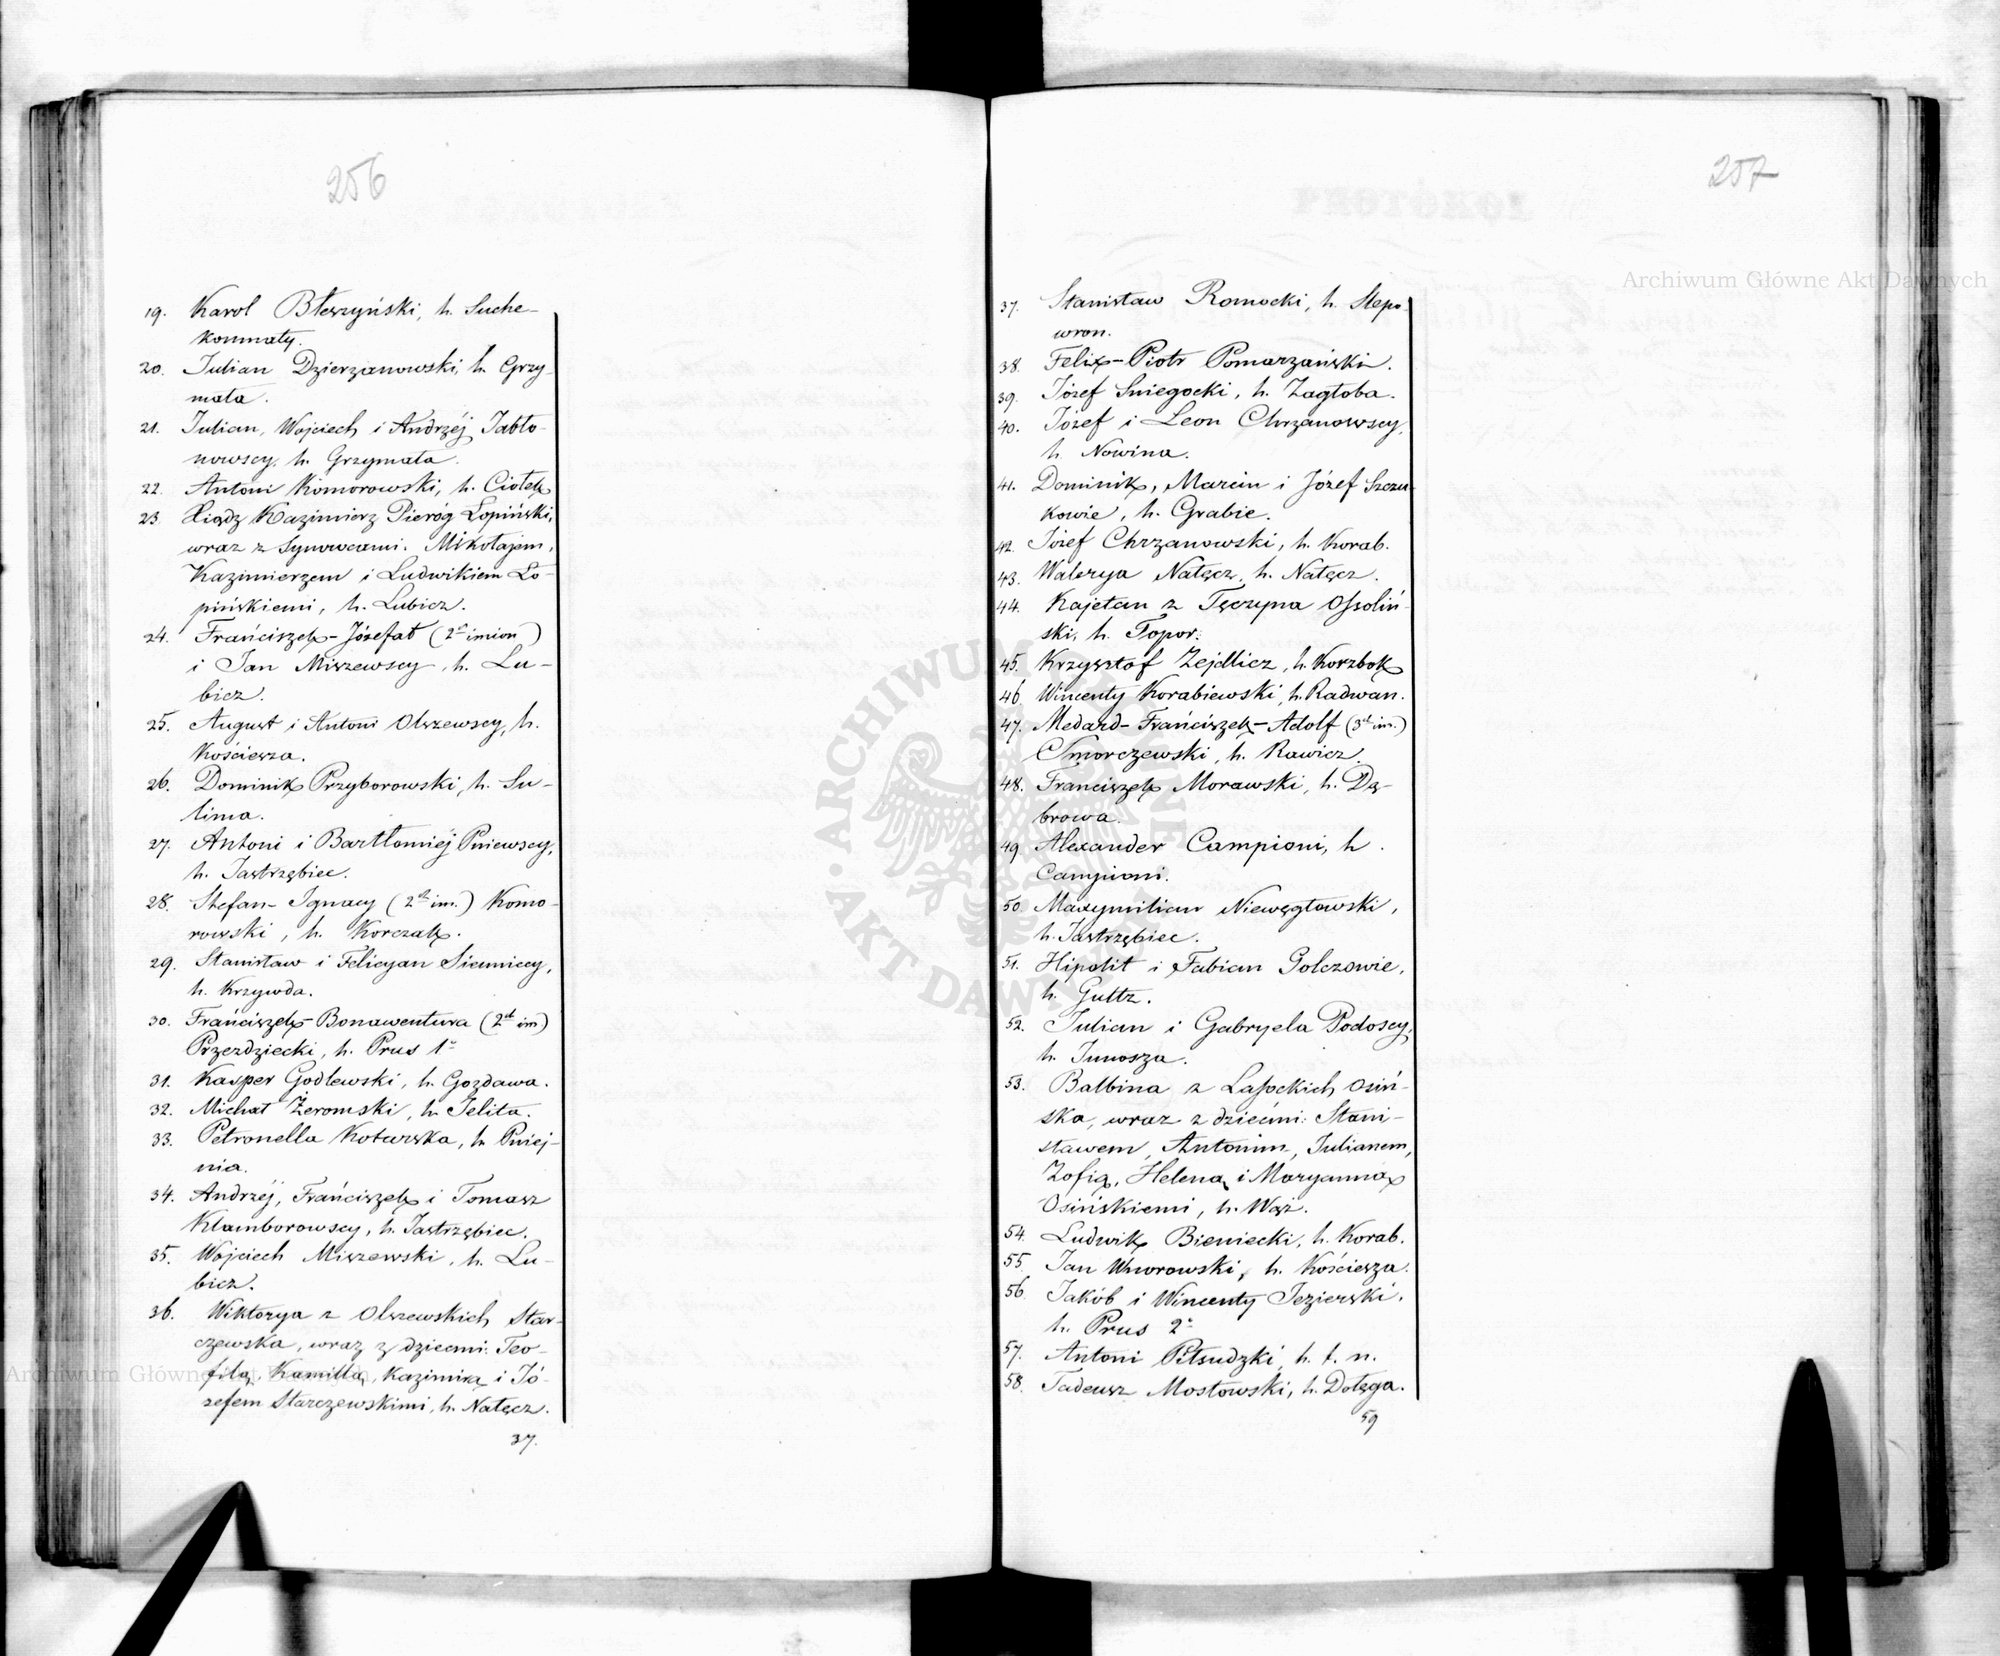 256
19. Karol Błeszyński, h. Suche-
komnaty.
20. Julian Dzierzanowski, h. Grzy-
mała.
21. Julian, Wojciech i Andrzéj Jabło-
nowscy, h. Grzymała.
22. Antoni Komorowski, h. Ciołek
23. Xiądz Kazimierz Pieróg Łopiński,
wraz z Synowcami: Mikołajem,
Kazimierzem i Ludwikiem Ło-
pińskiemi, h. Lubicz.
24. Frańciszek-Józefat (2ch imion)
i Jan Miszewscy, h. Lu-
bicz.
25. August i Antoni Olszewscy, h.
Kościesza.
26. Dominik Przyborowski, h. Su-
lima.
27. Antoni i Bartłomiéj Pniewscy,
h. Jastrzębiec.
28. Stefan-Ignacy (2ch im.) Komo-
rowski, h. Korczak.
29. Stanisław i Felicyan Sienniccy,
h. Krzywda.
30. Frańciszek-Bonawentura (2ch im)
Przezdziecki, h. Prus 1o
31. Kasper Godlewski, h. Gozdawa.
32. Michał Żeromski, h. Jelita.
33. Petronella Kotarska, h. Pniej-
nia.
34. Andrzéj, Frańciszek i Tomasz
Klamborowscy, h. Jastrzębiec.
35. Wojciech Miszewski, h. Lu-
bicz.
36. Wiktorya z Olszewskich Star-
czewska, wraz z dziećmi: Teo-
filą, Kamillą, Kazimirą i Jó-
zefem Starczewskimi, h. Nałęcz.
37.
257
37. Stanisław Romocki, h. Slepo-
wron.
38. Felix-Piotr Pomarzański.
39. Józef Sniegocki, h. Zagłoba.
40. Józef i Leon Chrzanowscy,
h. Nowina.
41. Dominik, Marcin i Józef Szczu-
kowie, h. Grabie.
42. Józef Chrzanowski, h. Korab.
43. Walerya Nałęcz, h. Nałęcz.
44. Kajetan z Tęczyna Ossoliń-
ski, h. Topor.
45. Krzysztof Zejdlicz, h. Korzbok
46. Wincenty Korabiewski, h. Radwan.
47. Medard-Frańciszek-Adolf (3ch im.)
Smorczewski, h. Rawicz.
48. Franciszek Morawski, h. Dą-
browa.
49. Alexander Campioni, h.
Campioni.
50. Maxymilian Niewęgłowski,
h. Jastrzębiec.
51. Hipolit i Fabian Golczowie,
h. Gultz.
52. Julian i Gabryela Podoscy,
h. Junosza.
53. Balbina z Lasockich Osiń-
ska, wraz z dziećmi: Stani-
sławem, Antonim, Julianem,
Zofią, Heleną i Maryanną
Osińskiemi, h. Wąż.
54. Ludwik Bieniecki, h. Korab.
55. Jan Wnorowski, h. Kościesza.
56. Jakób i Wincenty Jezierski,
h. Prus 2o
57. Antoni Piłsudzki, h. t. n.
58. Tadeusz Mostowski, h. Dołęga.
59
Archiwum Główne Akt Dawnych
Archiwum Główne Akt Dawnych
ARCHIWUM GŁÓWNE
AKT DAWNYCH